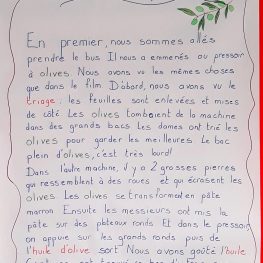 En premier, nous sommes allés
prendre le bus Il nous a emmenés au pressoir
à olives. Nous avons vu les mêmes choses
que dans le film D'abord, nous avons vu le
triage: les feuilles sont enlevées et mises
de côté Les olives tombaient de la machine
dans des grands bacs Les dames ont trié les
olives pour garder les meilleures Le bac
plein d'olives, c'est très lourd!
Dans l'autre machine, il y a 2 grosses pierres
qui ressemblent à des roues et qui écrasent les
olives. Les olives se transforment en pâte
marron Ensuite les messieurs ont mis la
pâte sur des plateaux ronds Et dans le pressoir
on appuie sur les grands ronds puis de
l'huile d'olive sort Nous avons goûté l'huile